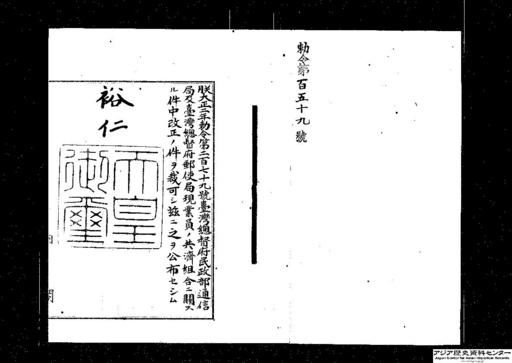 勅令第百五十九號
朕大正二年勅令第二百七十九號臺灣總督府民政部通信
局及臺灣總督府郵便局現業員ノ共濟組合ニ關ス
ル件中改正ノ件ヲ裁可シ玆ニ之ヲ公布セシム
裕仁
天皇御璽
アジア歴史資料センター
Japan Center for Asian Historical Records